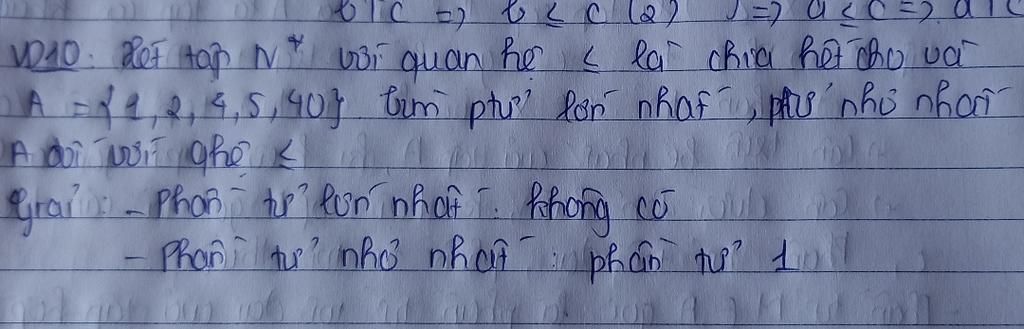 b | c => b ≤ c (2) => a ≤ c => a | c
VD10: Xét tập N* với quan hệ ≤ là chia hết cho và
A = {1, 2, 4, 5, 40} tìm ptử lớn nhất, ptử nhỏ nhất
A đối với qhệ ≤
Giải: - Phần tử lớn nhất: không có
- Phần tử nhỏ nhất: phần tử 1